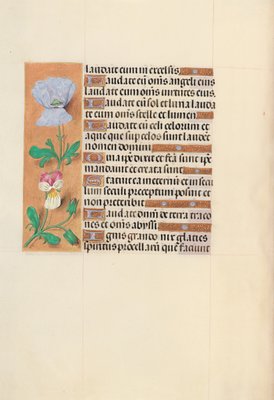 laudate eum in excelsis
Laudate eum om̄s angeli eius
laudate eum om̄s virtutes eius.
Laudate eū sol et luna lauda
te eum om̄s stelle et lumen
Laudate eū celi celorum et
aque que sup celos sunt laudent
nomen domini
Quia ip̄e dixit et fc̄a sunt ip̄e
mandauit et creata sunt
Statuit ea in eternū et in secu
lum seculi preceptum posuit et
non preteribit
Laudate dn̄m de terra draco
nes et om̄s abyssi
Ignis grando nix glacies
spiritus procellarū que faciunt